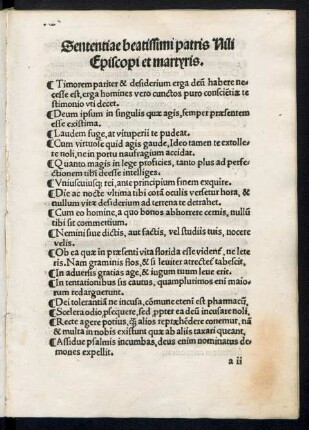 Sententiae beatissimi patris Nili
Episcopi et martyris.
¶ Timorem pariter & desiderium erga deũ habere ne
cesse est, erga homines vero cunctos puro consciẽtiæ te
stimonio vti decet.
¶ Deum ipsum in singulis quæ agis, semper præsentem
esse existima.
¶ Laudem fuge, at vituperii te pudeat.
¶ Cum virtuose quid agis gaude, Ideo tamen te extolle
re noli, ne in portu naufragium accidat.
¶ Quanto magis in lege proficies, tanto plus ad perfe
ctionem tibi deesse intelligas.
¶ Vniuscuiusq; rei, ante principium finem exquire.
¶ Die ac nocte vltima tibi corã oculis versetur hora, &
nullum vitæ desiderium ad terrena te detrahet.
¶ Cum eo homine, a quo bonos abhorrere cernis, nullũ
tibi sit commertium.
¶ Nemini siue dictis, aut factis, vel studiis tuis, nocere
velis.
¶ Ob ea quæ in præsenti vita florida esse videnť, ne læte
ris. Nam graminis flos, & si leuiter atrecteť tabescit,
¶ In aduersis gratias age, & iugum tuum leue erit.
¶ In tentationibus sis cautus, quamplurimos eni maio
rum redarguerunt.
¶ Dei tolerantiã ne incusa, cõmune etenĩ est pharmacũ,
¶ Scelera odio psequere, sed ppter ea dei incusare noli,
¶ Recte agere potius, q̃ alios repræhẽdere conemur, nã
& multa in nobis existunt quæ ab aliis taxari queant,
¶ Assidue psalmis incumbas, deus enim nominatus dæ
mones expellit.
a ii